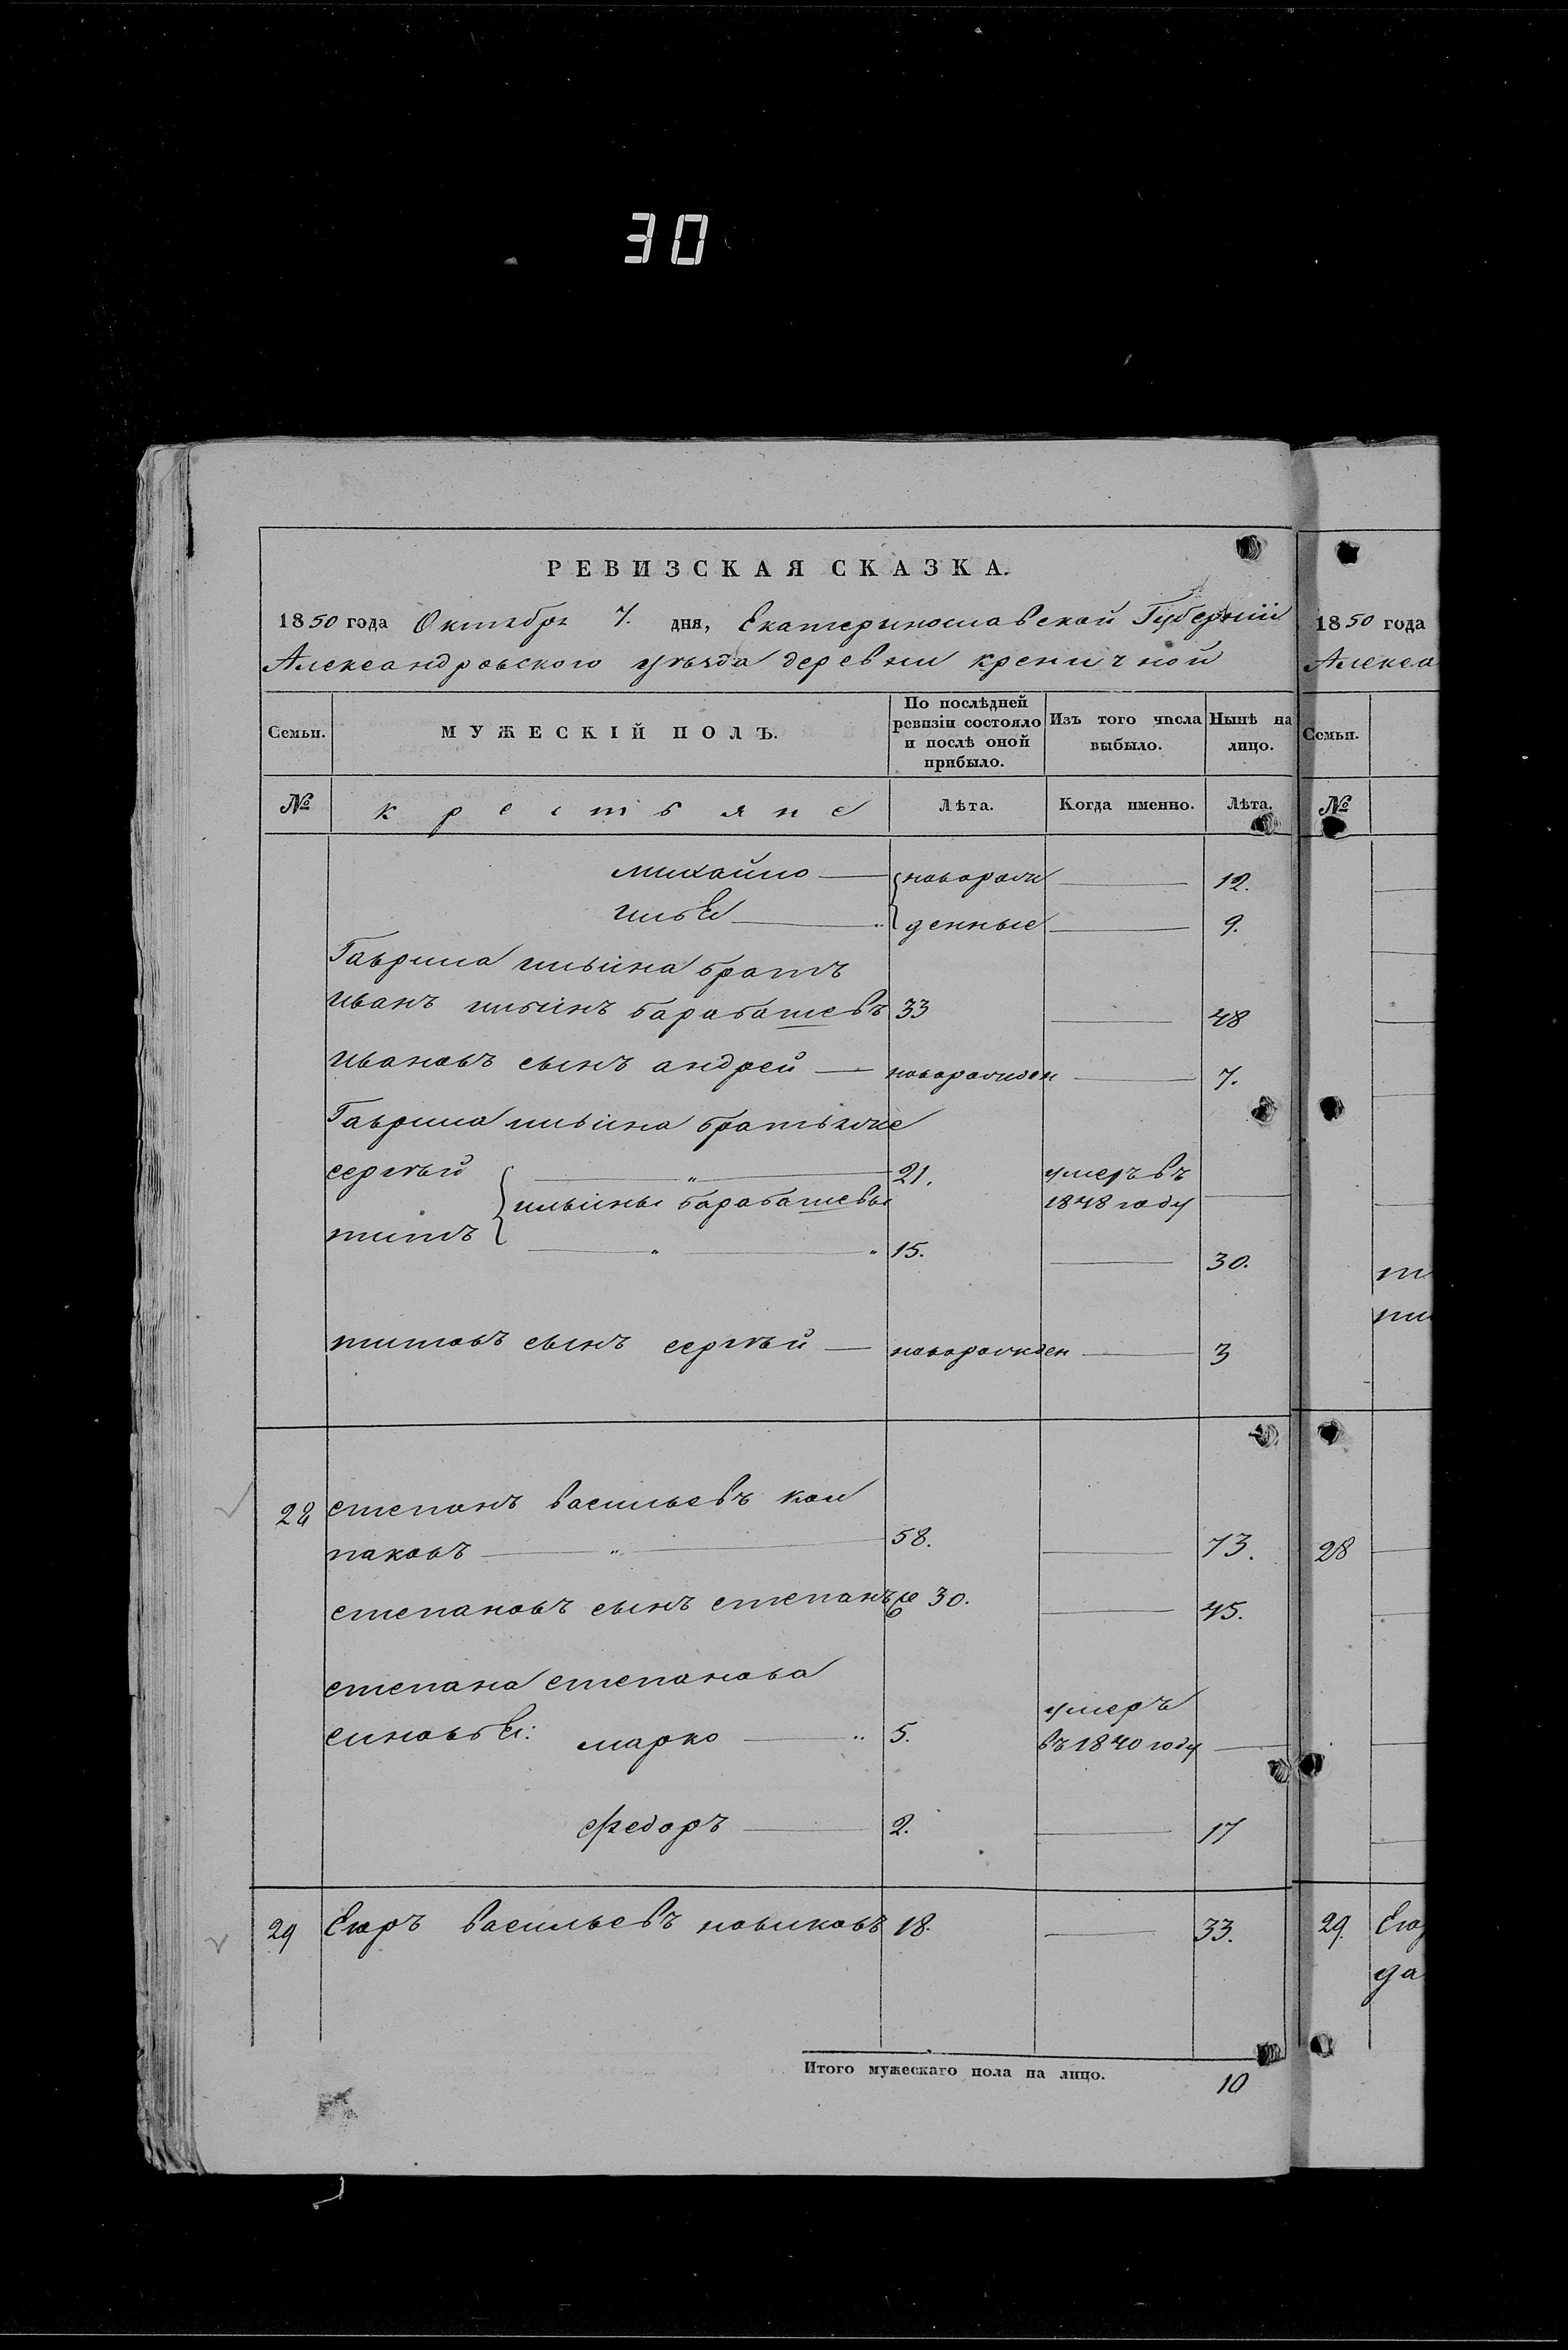 30
РЕВИЗСКАЯ СКАЗКА.
1850 года Октября 7. дня, Екатеринославской Губерніи
Александровского уѣзда деревни креничной
Семьи. МУЖЕСКІЙ ПОЛЪ. По послѣдней ревизіи состояло и послѣ оной прибыло. Изъ того числа выбыло. Нынѣ на лицо.
№ крестьяне Лѣта. Когда именно. Лѣта.
михайло новорож 12.
илья денные 9.
Гаврила ильина братъ
иванъ ильинъ барабашевъ 33 48
ивановъ сынъ андрей новорожден 7.
Гаврила ильина братья же
сергѣй 21. умеръ въ
ильины барабашевы 1848 году
титъ 15. 30.
титовъ сынъ сергѣй новорожден 3
28 степанъ васильевъ кол
паковъ 58. 73.
степановъ сынъ степанъ 30. 45.
степана степанова
умеръ
синовья: марко 5. въ 1840 году
федоръ 2. 17
29 Егоръ васильевъ новиковъ 18. 33.
Итого мужескаго пола на лицо. 10
1850 года
Алекса
Семьи.
№
28
29. Его